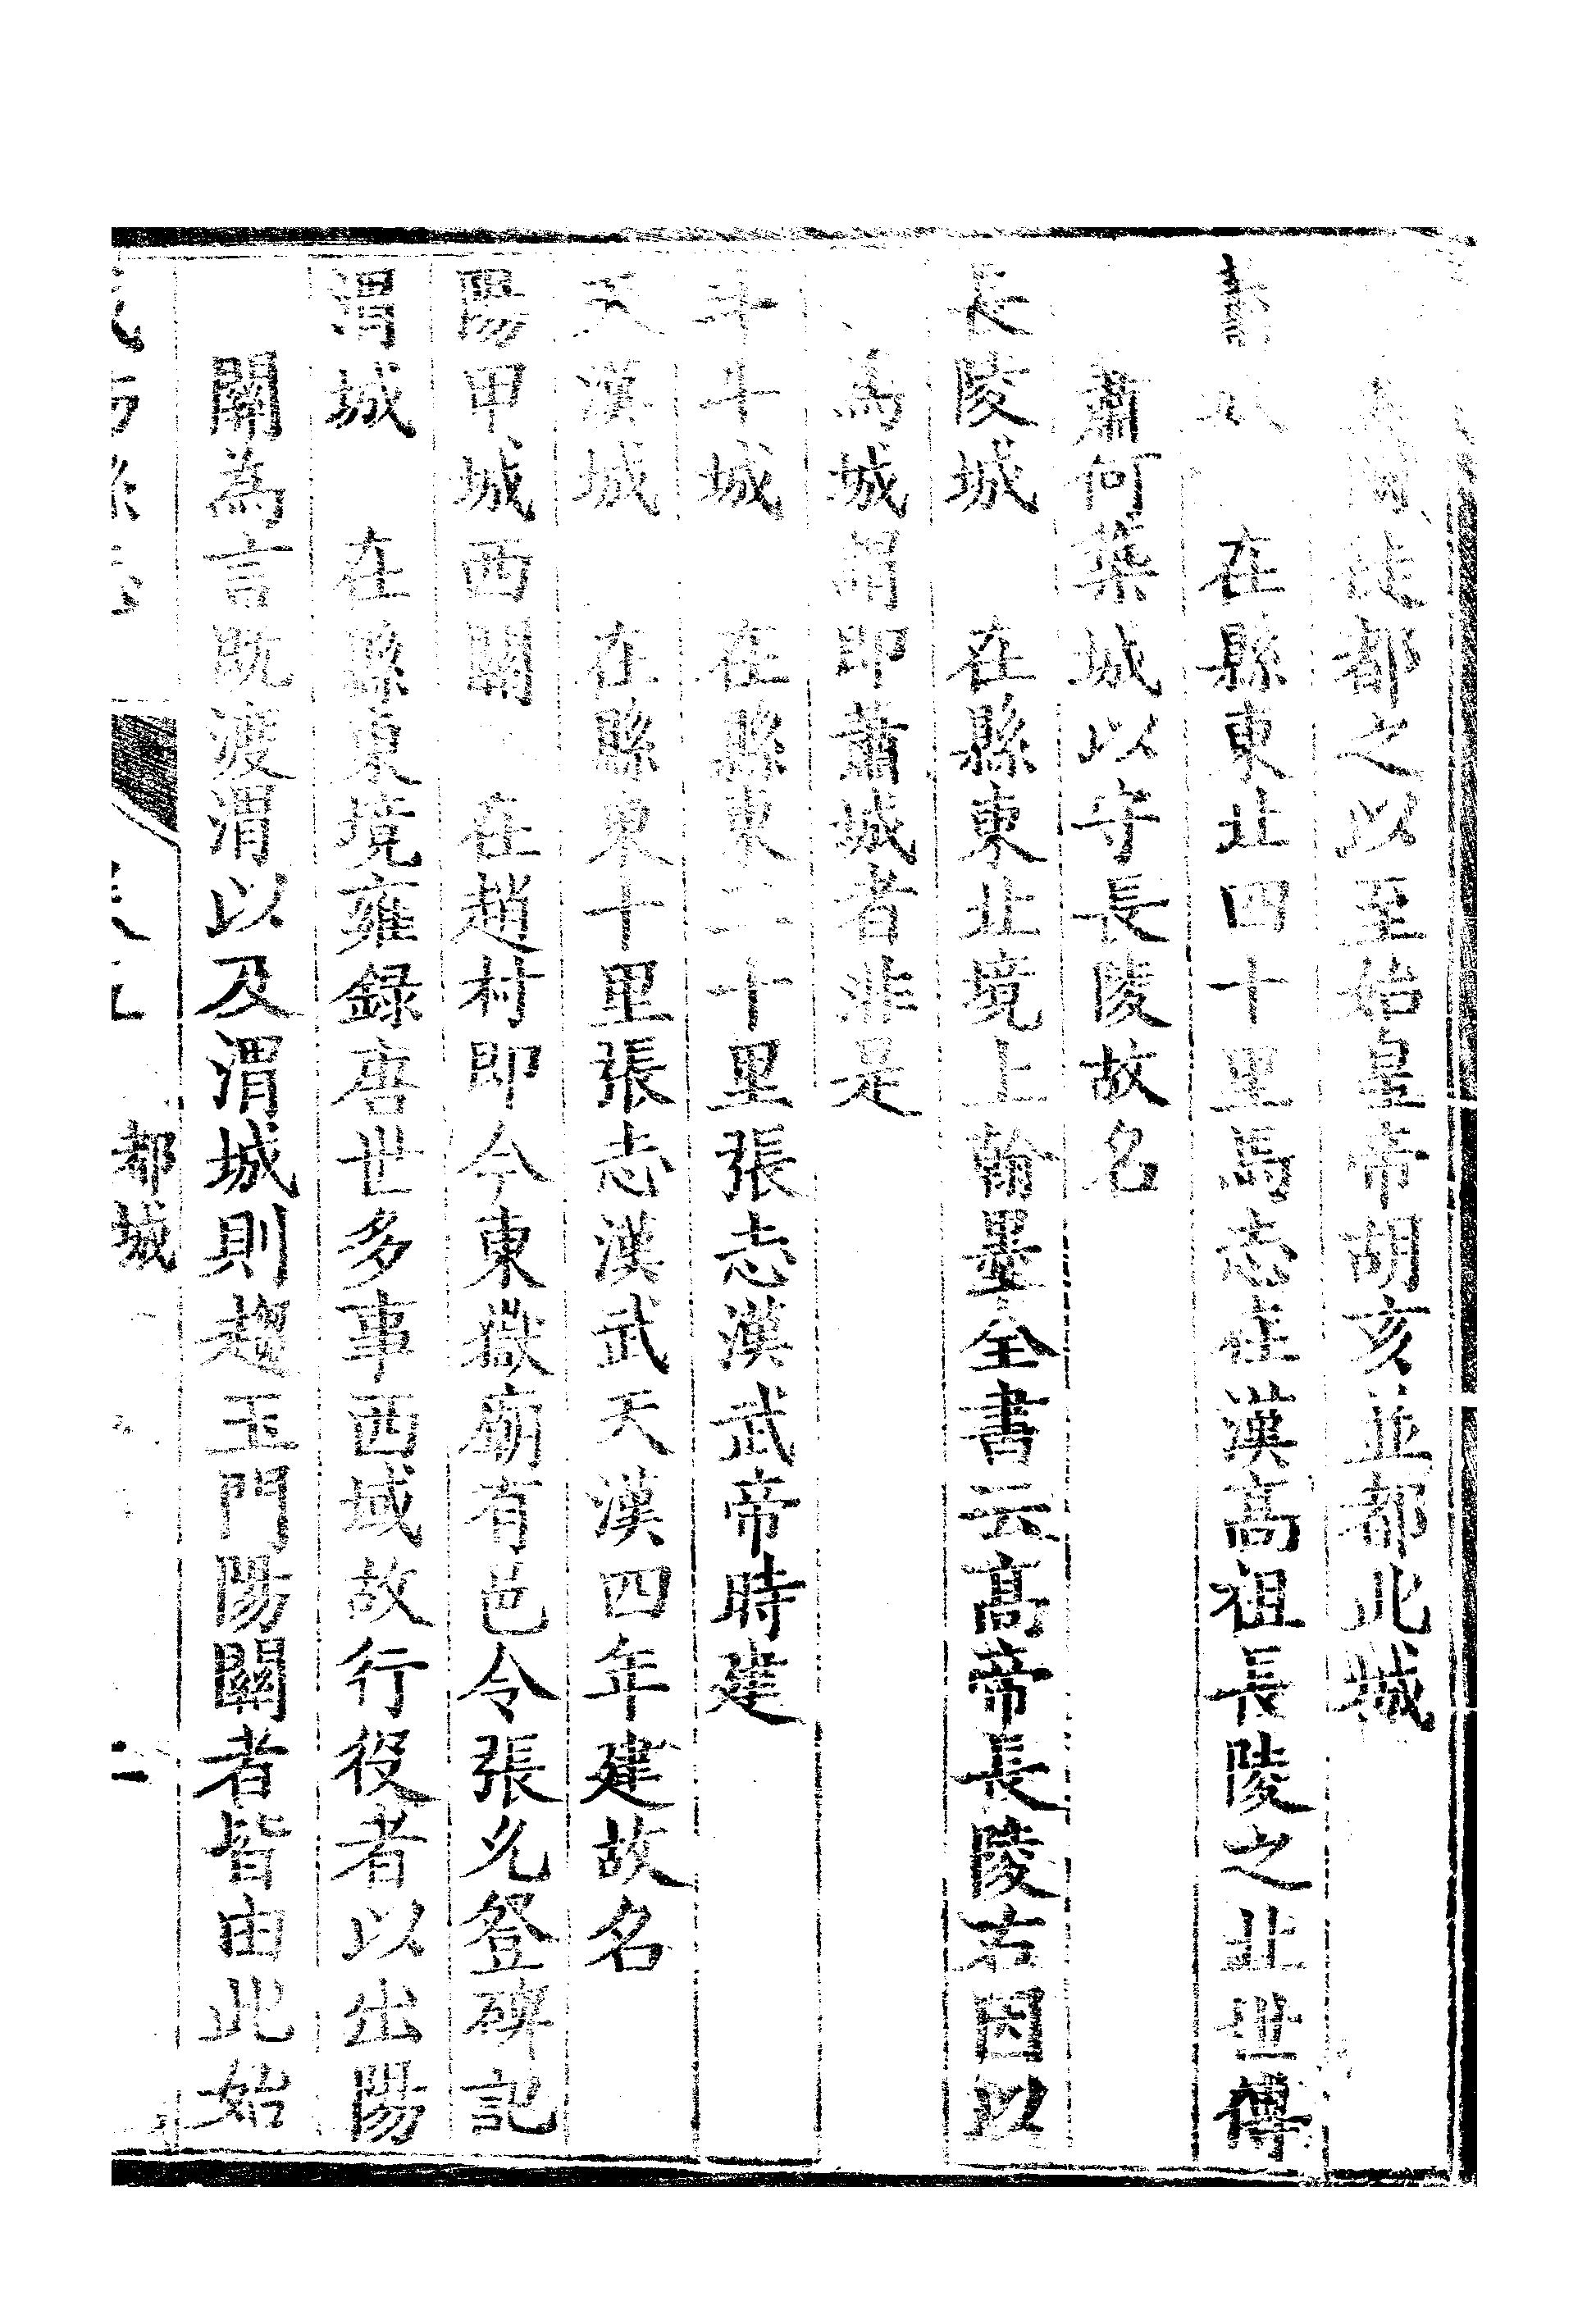 徙都之以至始皇帝胡亥並都此城
在縣東北四十里馬志在漢高祖長陵之北世傳
蕭何築城以守長陵故名
長陵城　在縣東北境上翰墨全書云高帝長陵右因以
為城謂即蕭城者非是
斗城　在縣東二十里張志漢武帝時建
天漢城　在縣東十里張志漢武天漢四年建故名
陽甲城西關　在趙村即今東嶽廟有邑令張允登碑記
渭城　在縣東境雍錄唐世多事西域故行役者以出陽
關為言既渡渭以及渭城則趨玉門陽關者皆由此始
都城
二